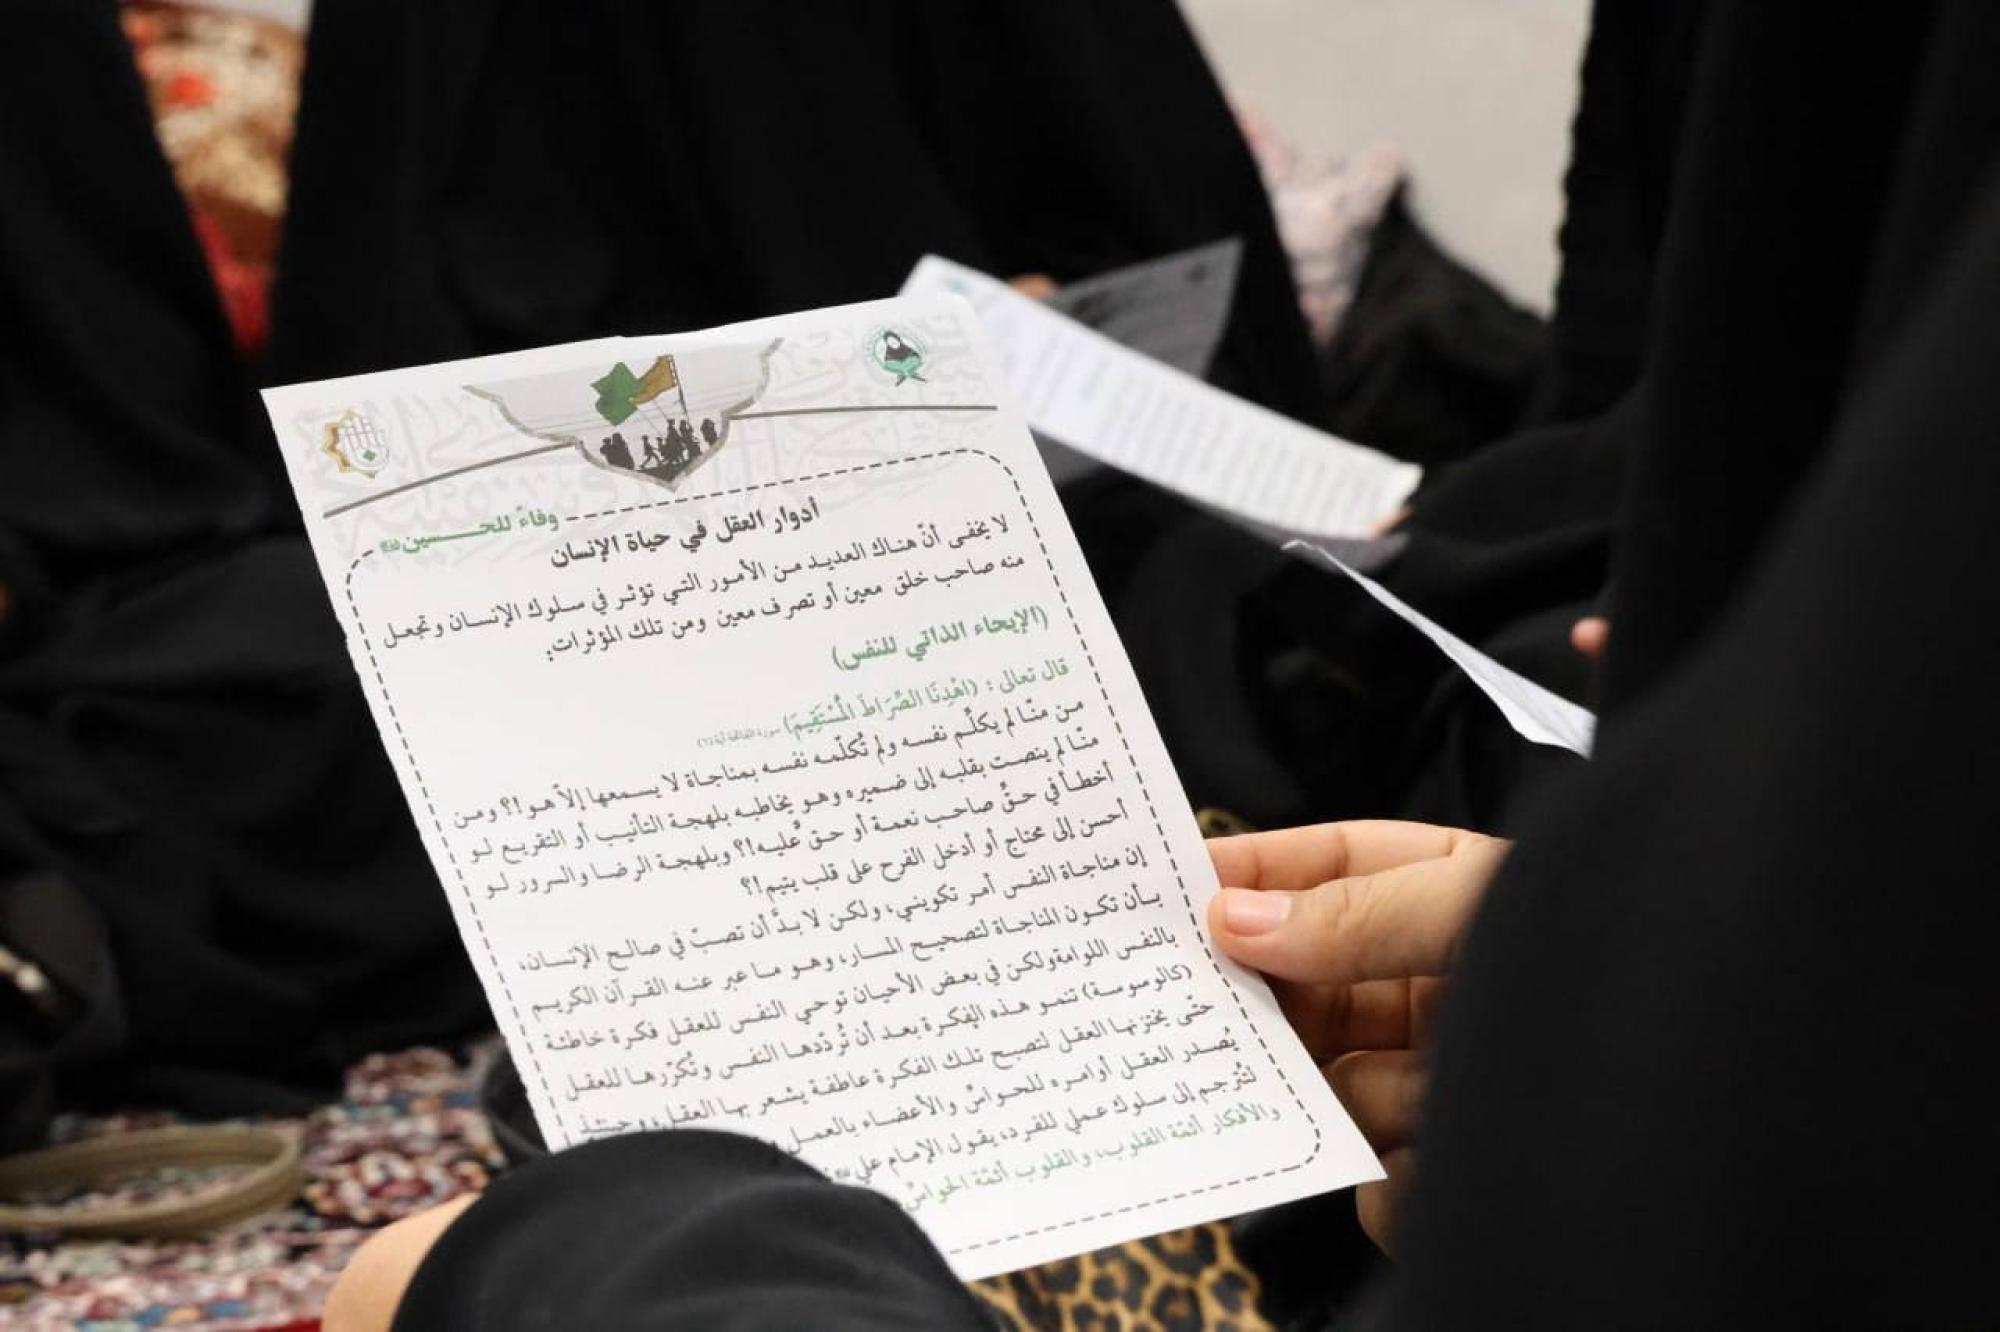 وفاءً للحسين
أدوار العقل في حياة الإنسان
لا يخفى أنّ هناك العديد من الأمور التي تؤثر في سلوك الإنسان وتجعل
منه صاحب خلق معين أو تصرف معين ومن تلك المؤثرات:
(الإيحاء الذاتي للنفس)
قال تعالى: (اهْدِنَا الصِّرَاطَ المُسْتَقِيمَ) سورة الفاتحة آية (٦)
من منّا لم يكلّم نفسه ولم تُكلّمه نفسه بمناجاة لا يسمعها إلاّ هو!؟ ومن
منّا لم ينصت بقلبه إلى ضميره وهو يخاطبه بلهجة التأنيب أو التقريع لو
أخطأ في حقّ صاحب نعمة أو حق عليه!؟ وبلهجة الرضا والسرور لو
أحسن إلى محتاج أو أدخل الفرح على قلب يتيم!؟
إن مناجاة النفس أمر تكويني، ولكن لا بدَّ أن تصبّ في صالح الإنسان،
بأن تكون المناجاة لتصحيح المسار، وهو ما عبر عنه القرآن الكريم
بالنفس اللوامة ولكن في بعض الأحيان توحي النفس للعقل فكرة خاطئة
(كالوسوسة) تنمو هذه الفكرة بعد أن تُردّدها النفس وتُكرّرها للعقل
حتّى يختزنها العقل لتصبح تلك الفكرة عاطفة يشعر بها العقل، وحينئذ
يُصدر العقل أوامره للحواسّ والأعضاء بالعمل
لتُترجم إلى سلوك عملي للفرد، يقول الإمام علي
والأفكار أئمّة القلوب، والقلوب أئمّة الحواسّ